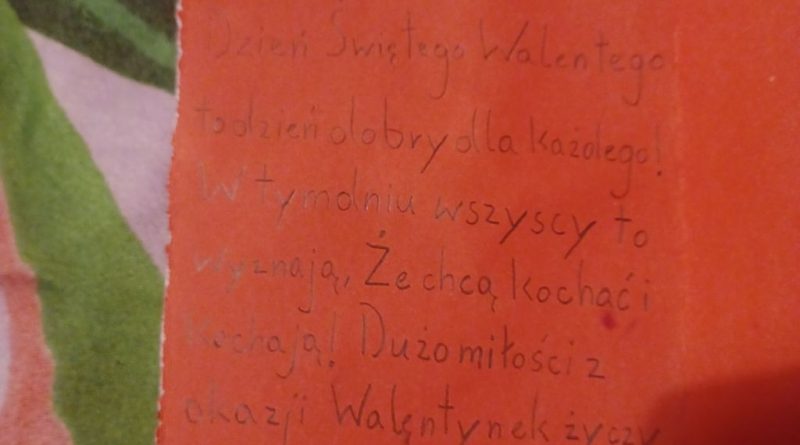 Dzień Świętego Walentego
to dzień dobry dla każdego!
W tym dniu wszyscy to
wyznają, Że chcą kochać i
kochają! Dużo miłości z
okazji Walentynek życzy